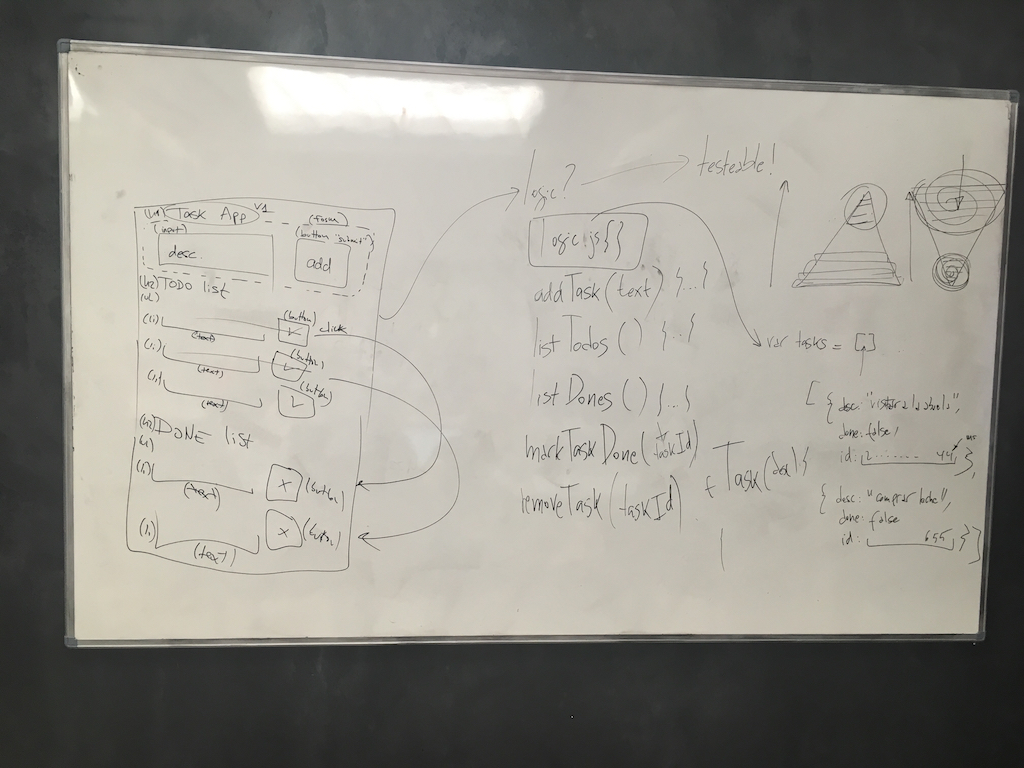 (h1) Task App v1
(form)
(input)
(button "submit")
desc.
add
(h2) TODO list
(ul)
(li)
(text)
(button)
click
(li)
(text)
(button)
(li)
(text)
(button)
(h2) DONE list
(ul)
(li)
(text)
X
(button)
(li)
(text)
X
(button)
logic?
testeable!
logic.js {}
addTask (text) {...}
listTodos () {...}
listDones () {...}
markTaskDone (taskId)
removeTask (taskId)
f Task (desc) {
var tasks = []
[ { desc: "visitar a la abuela",
done: false,
id: 2 ...... 44 },
ms
{ desc: "comprar leche",
done: false
id: 655 } ]